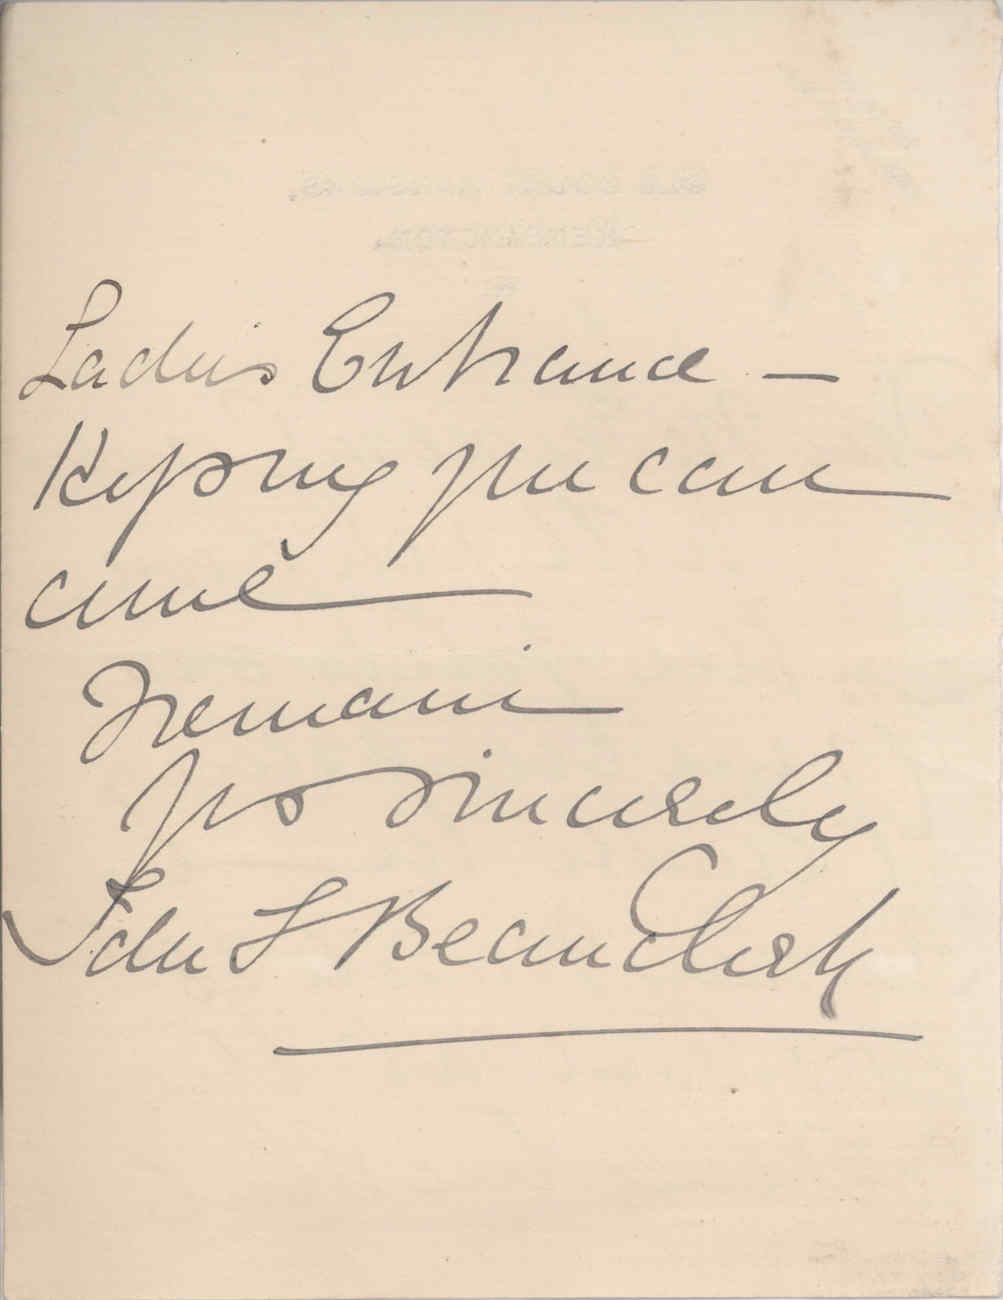 Ladies Entrance —
Hoping you can
come
I remain
Yrs sincerely
Beauclerk